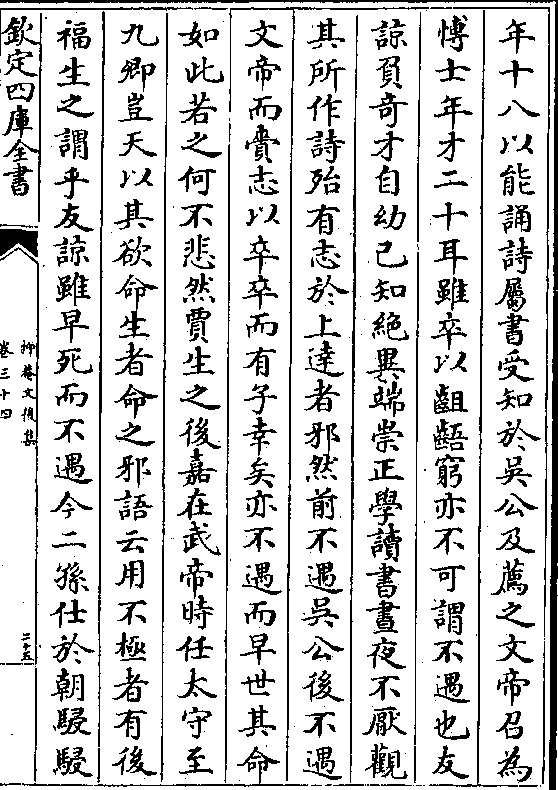 年十八以能誦詩屬書受知於吳公及薦之文帝召為
博士年才二十耳雖卒以齟齬窮亦不可謂不遇也友
諒負奇才自幼已知絕異端崇正學讀書晝夜不厭觀
其所作詩殆有志於上達者邪然前不遇吳公後不遇
文帝而賫志以卒卒而有子幸矣亦不遇而早世其命
如此若之何不悲然賈生之後嘉在武帝時任太守至
九卿豈天以其欲命生者命之邪語云用不極者有後
福生之謂乎友諒雖早死而不遇今二孫仕於朝駸駸
欽定四庫全書
抑菴文後集
卷三十四
二十五